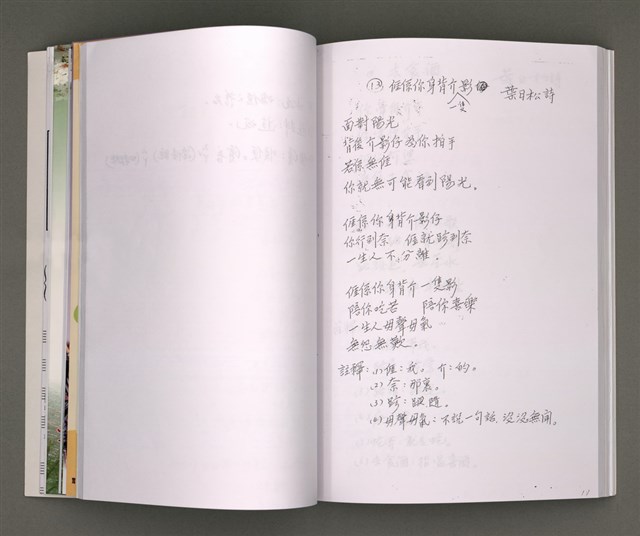 ⑬ 𠊎係你身背介一隻影 葉日松詩
面對陽光
背後介影仔為你拍手
若係無𠊎
你就無可能看到陽光。
𠊎係你身背介影仔
你行到奈 𠊎就跈到奈
一生人不分離。
𠊎係你身背介一隻影
陪你吃苦 陪你喜樂
一生人毋聲毋氣
無怨無歎。
註釋：(1)𠊎：我。 介：的。
(2)奈：那裏。
(3)跈：跟隨。
(4)毋聲毋氣：不說一句話，沒沒無聞。